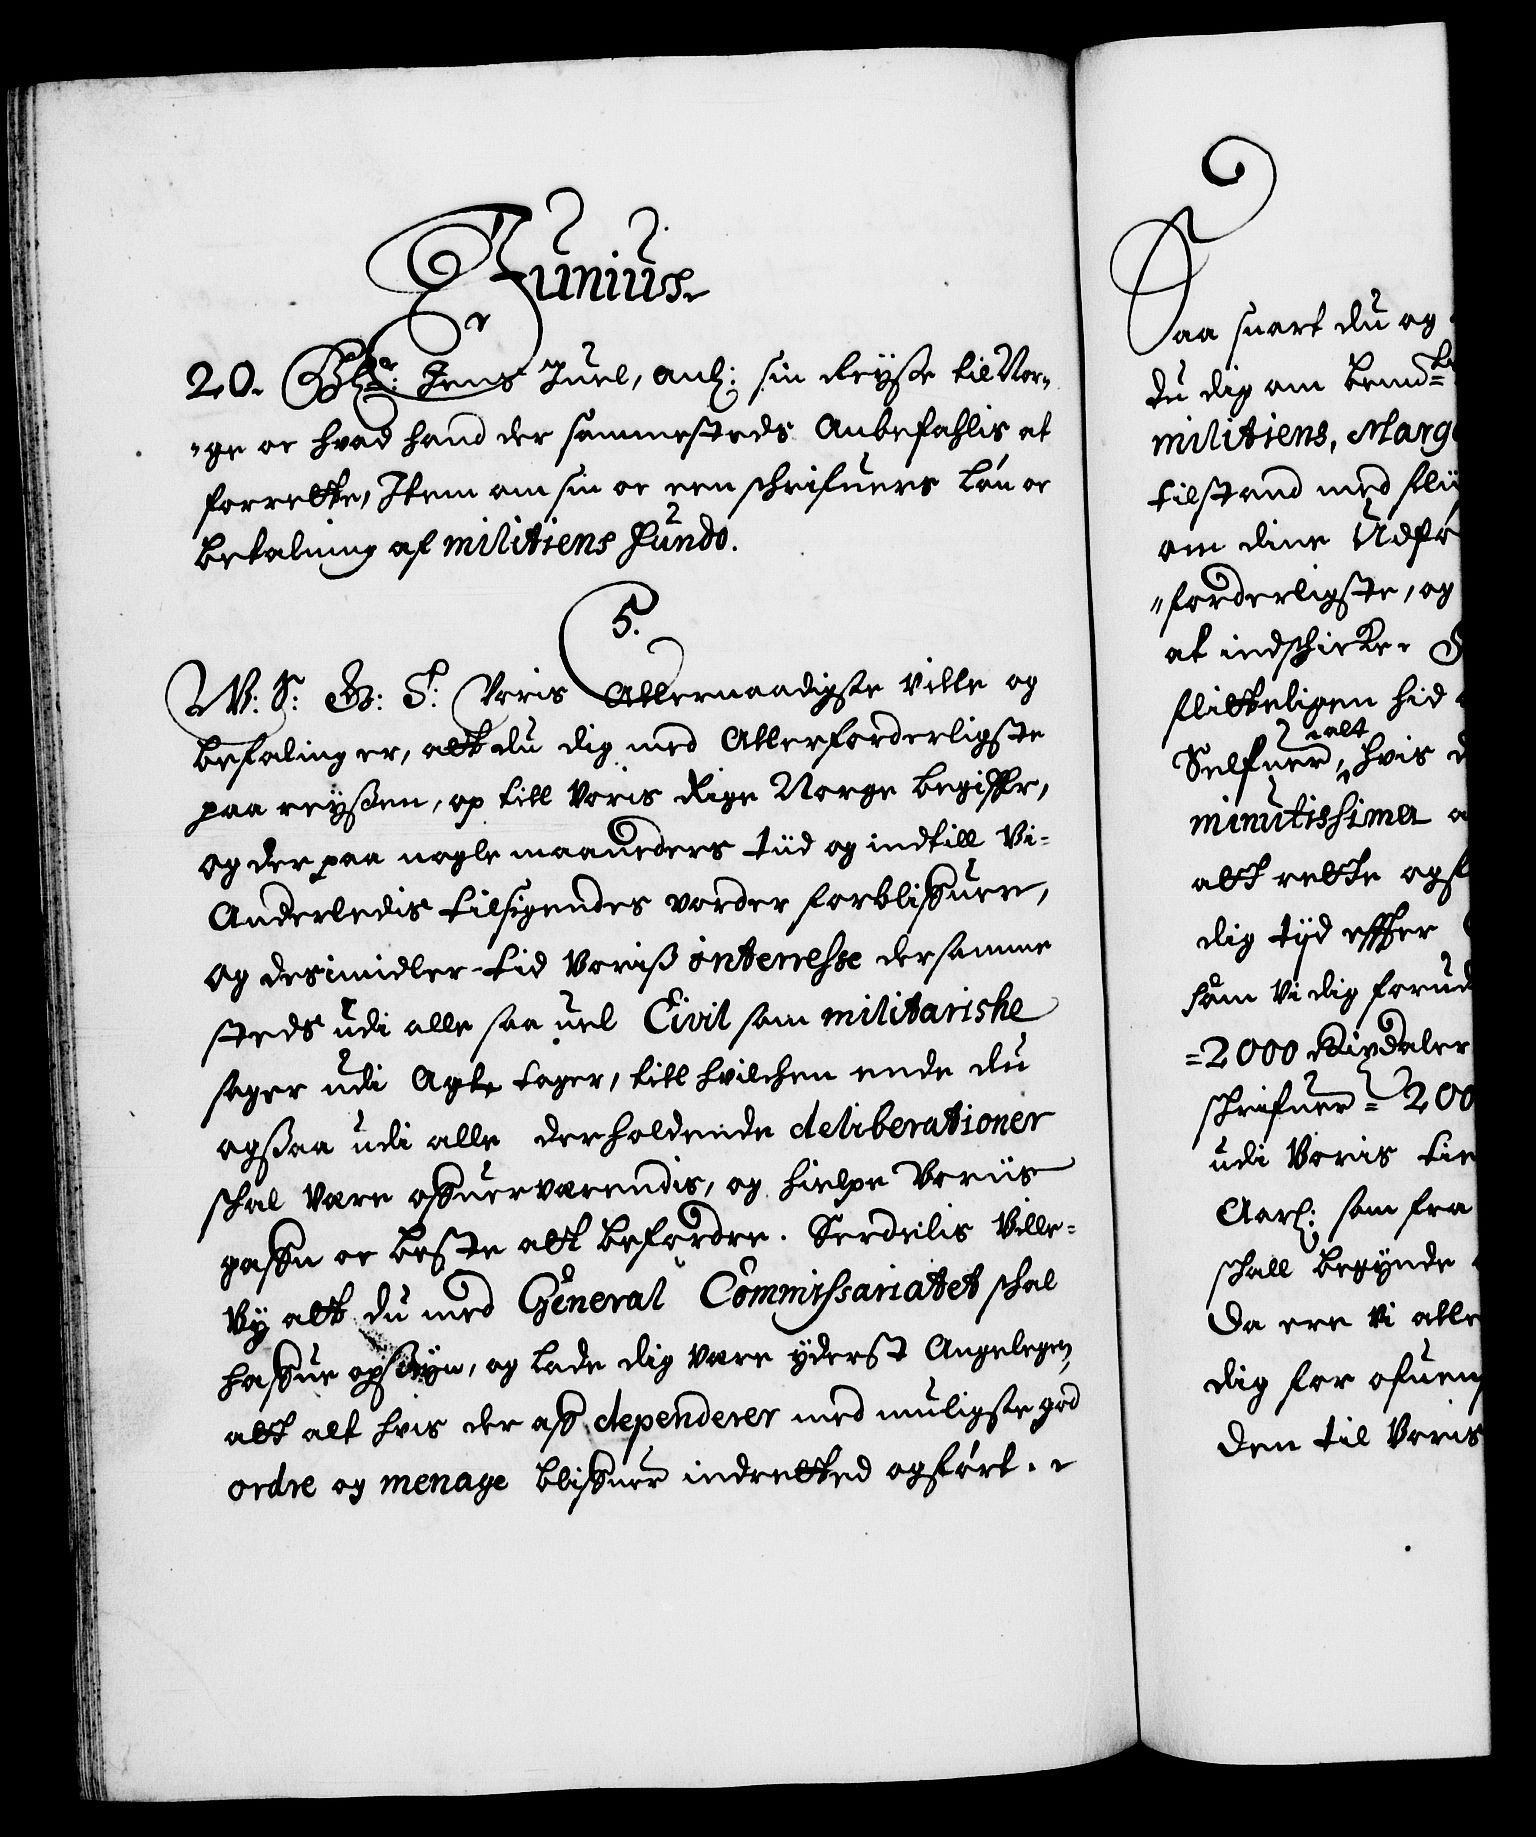 Junius
20. Hr: Jens Juel, anl: sin Reysse til Nor„
„ge oc hvad hand der sammesteds Anbefahlis at
forrette, Item om sin oc een schrifuers Løn oc
betalning af militiens Fundo.
5.
W: S: G: T: Voris Allernaadigste Ville og
befaling er, att du dig med Allerforderligste
paa reyssen, op till Voris Rige Norge begiffr,
og der paa nogle maaneders tiid og indtill Vi-
Anderledis tilsigendes vorder forbliffuer,
og desimidler-tid Voriss interresse dersamme
steds udi alle saa uel Civil som militarishe
sager udi Agt tager, till hvilchen ende du
ogsaa udi alle derholdende deliberationer
schal være offuerværendis, og hielpe Voriis
gaffn oc beste att befordre. Serdeilis Ville-
Vy att du med General Commissariatet schal
haffue opsiyn, og lade dig være yderst Angelegen,
att alt hvis der aff dependerer med muligste god
ordre og menage bliffuer indretted og ført.
Saa snart du og
du dig om bemd=te
militiens, Marg
tilstand med flii
om dine Udfø
„forderligste, og
at indschicke.
flitteligen hid
Selfuer, alt hvis d
minutissima a
att rette og f
dig tyd effter
som Vi dig forud
=2000 Rixdaler
schrifuer = 200
udi Voris tie
Aarl: som fra
schall begynde
Da ere Vi alle
dig for ofuen
den til Voris